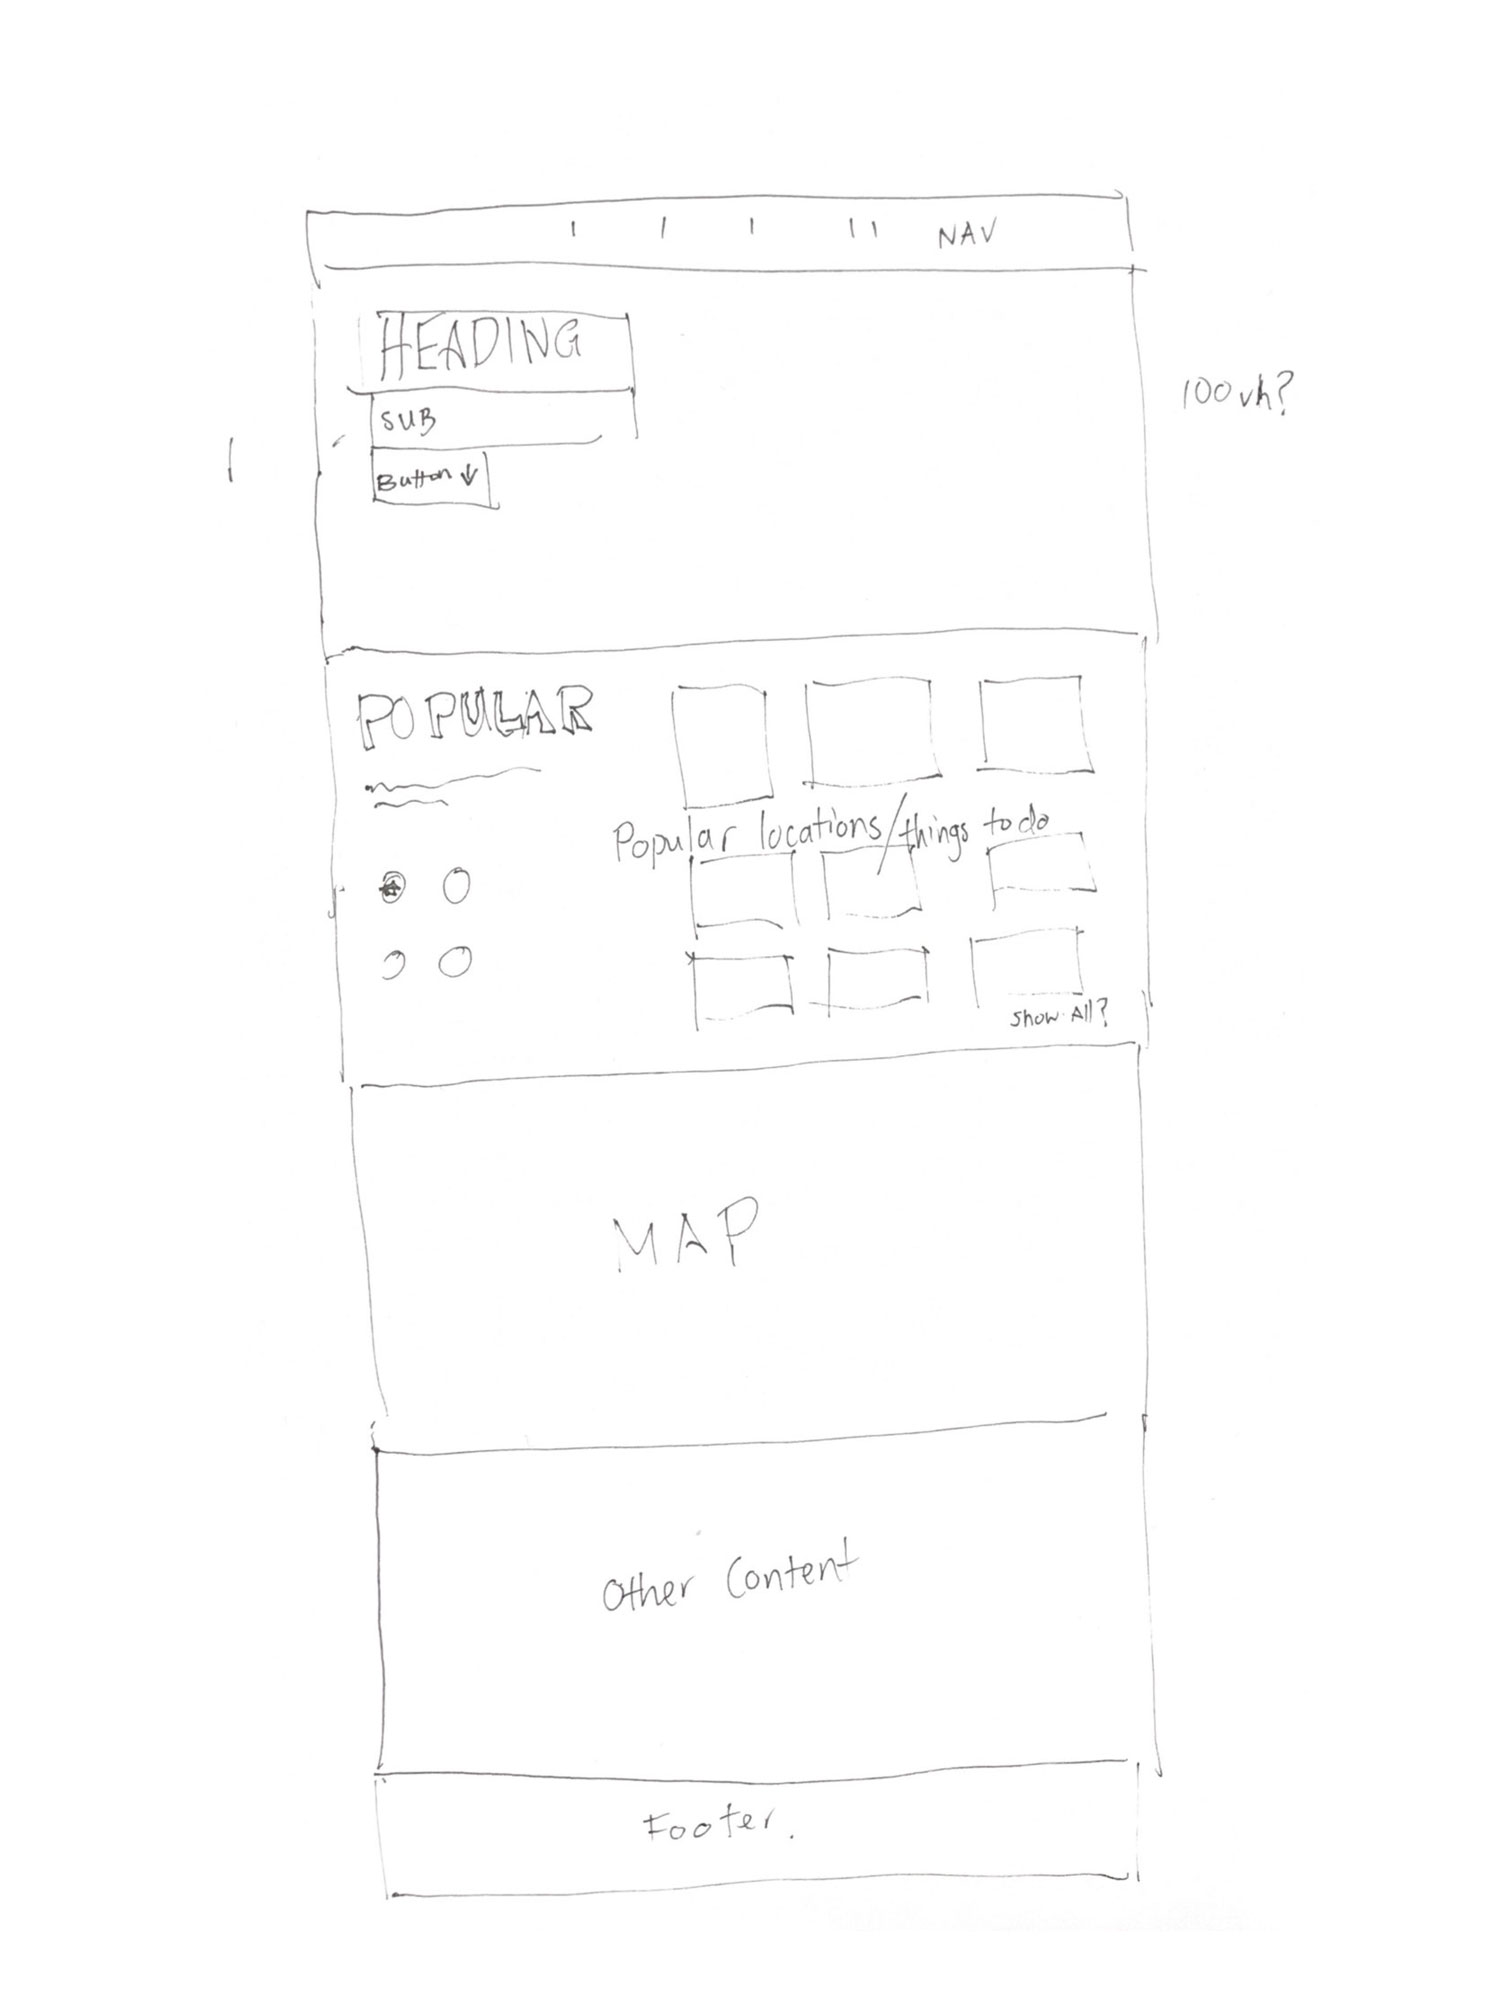 NAV
HEADING
100vh?
SUB
Button ↓
POPULAR
Popular locations/things to do
Show All?
MAP
Other Content
Footer.